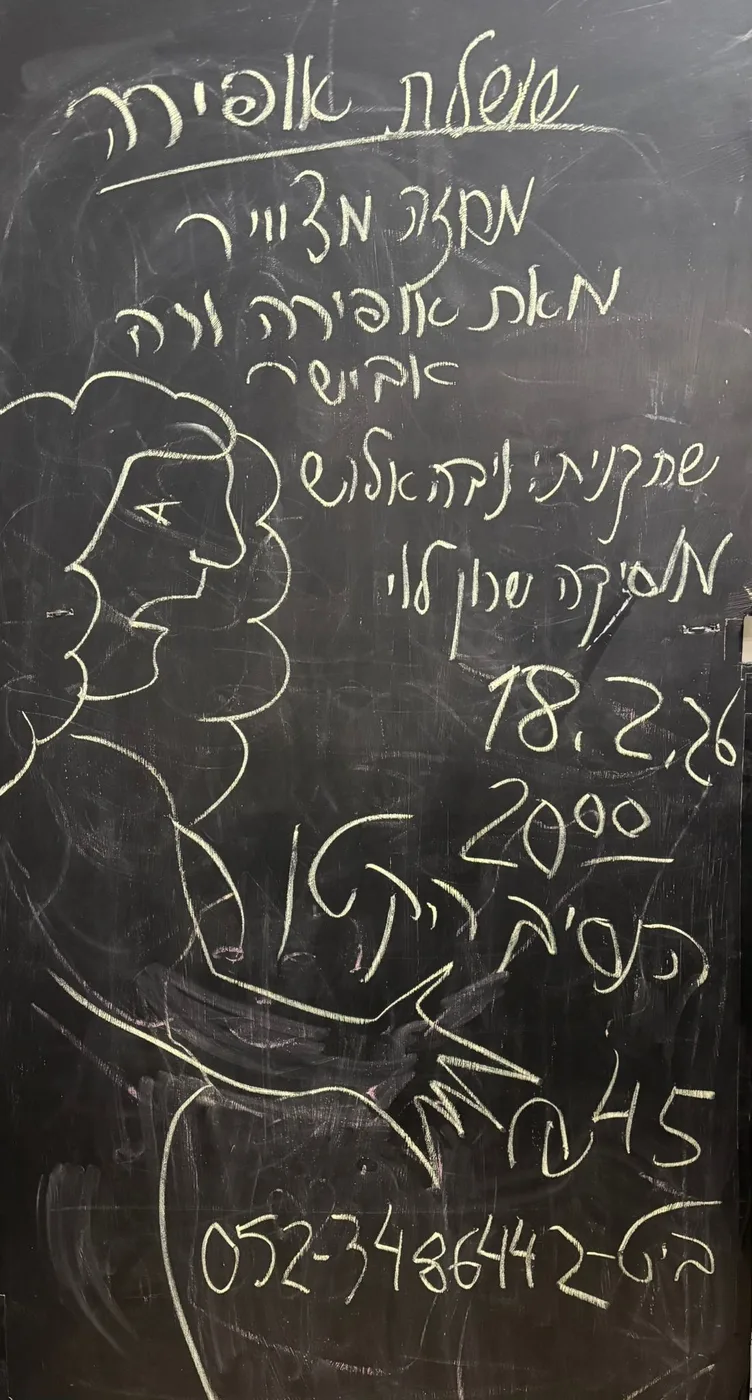 שושלת אופירה
מחזה מצוייר
מאת אופירה ורה
אבישר
שחקנית: ניבה אלוש
מוסיקה שרון לוי
18.2.26
20⁰⁰
הנסיך הקטן
45 ₪
ביט - 052-3486442